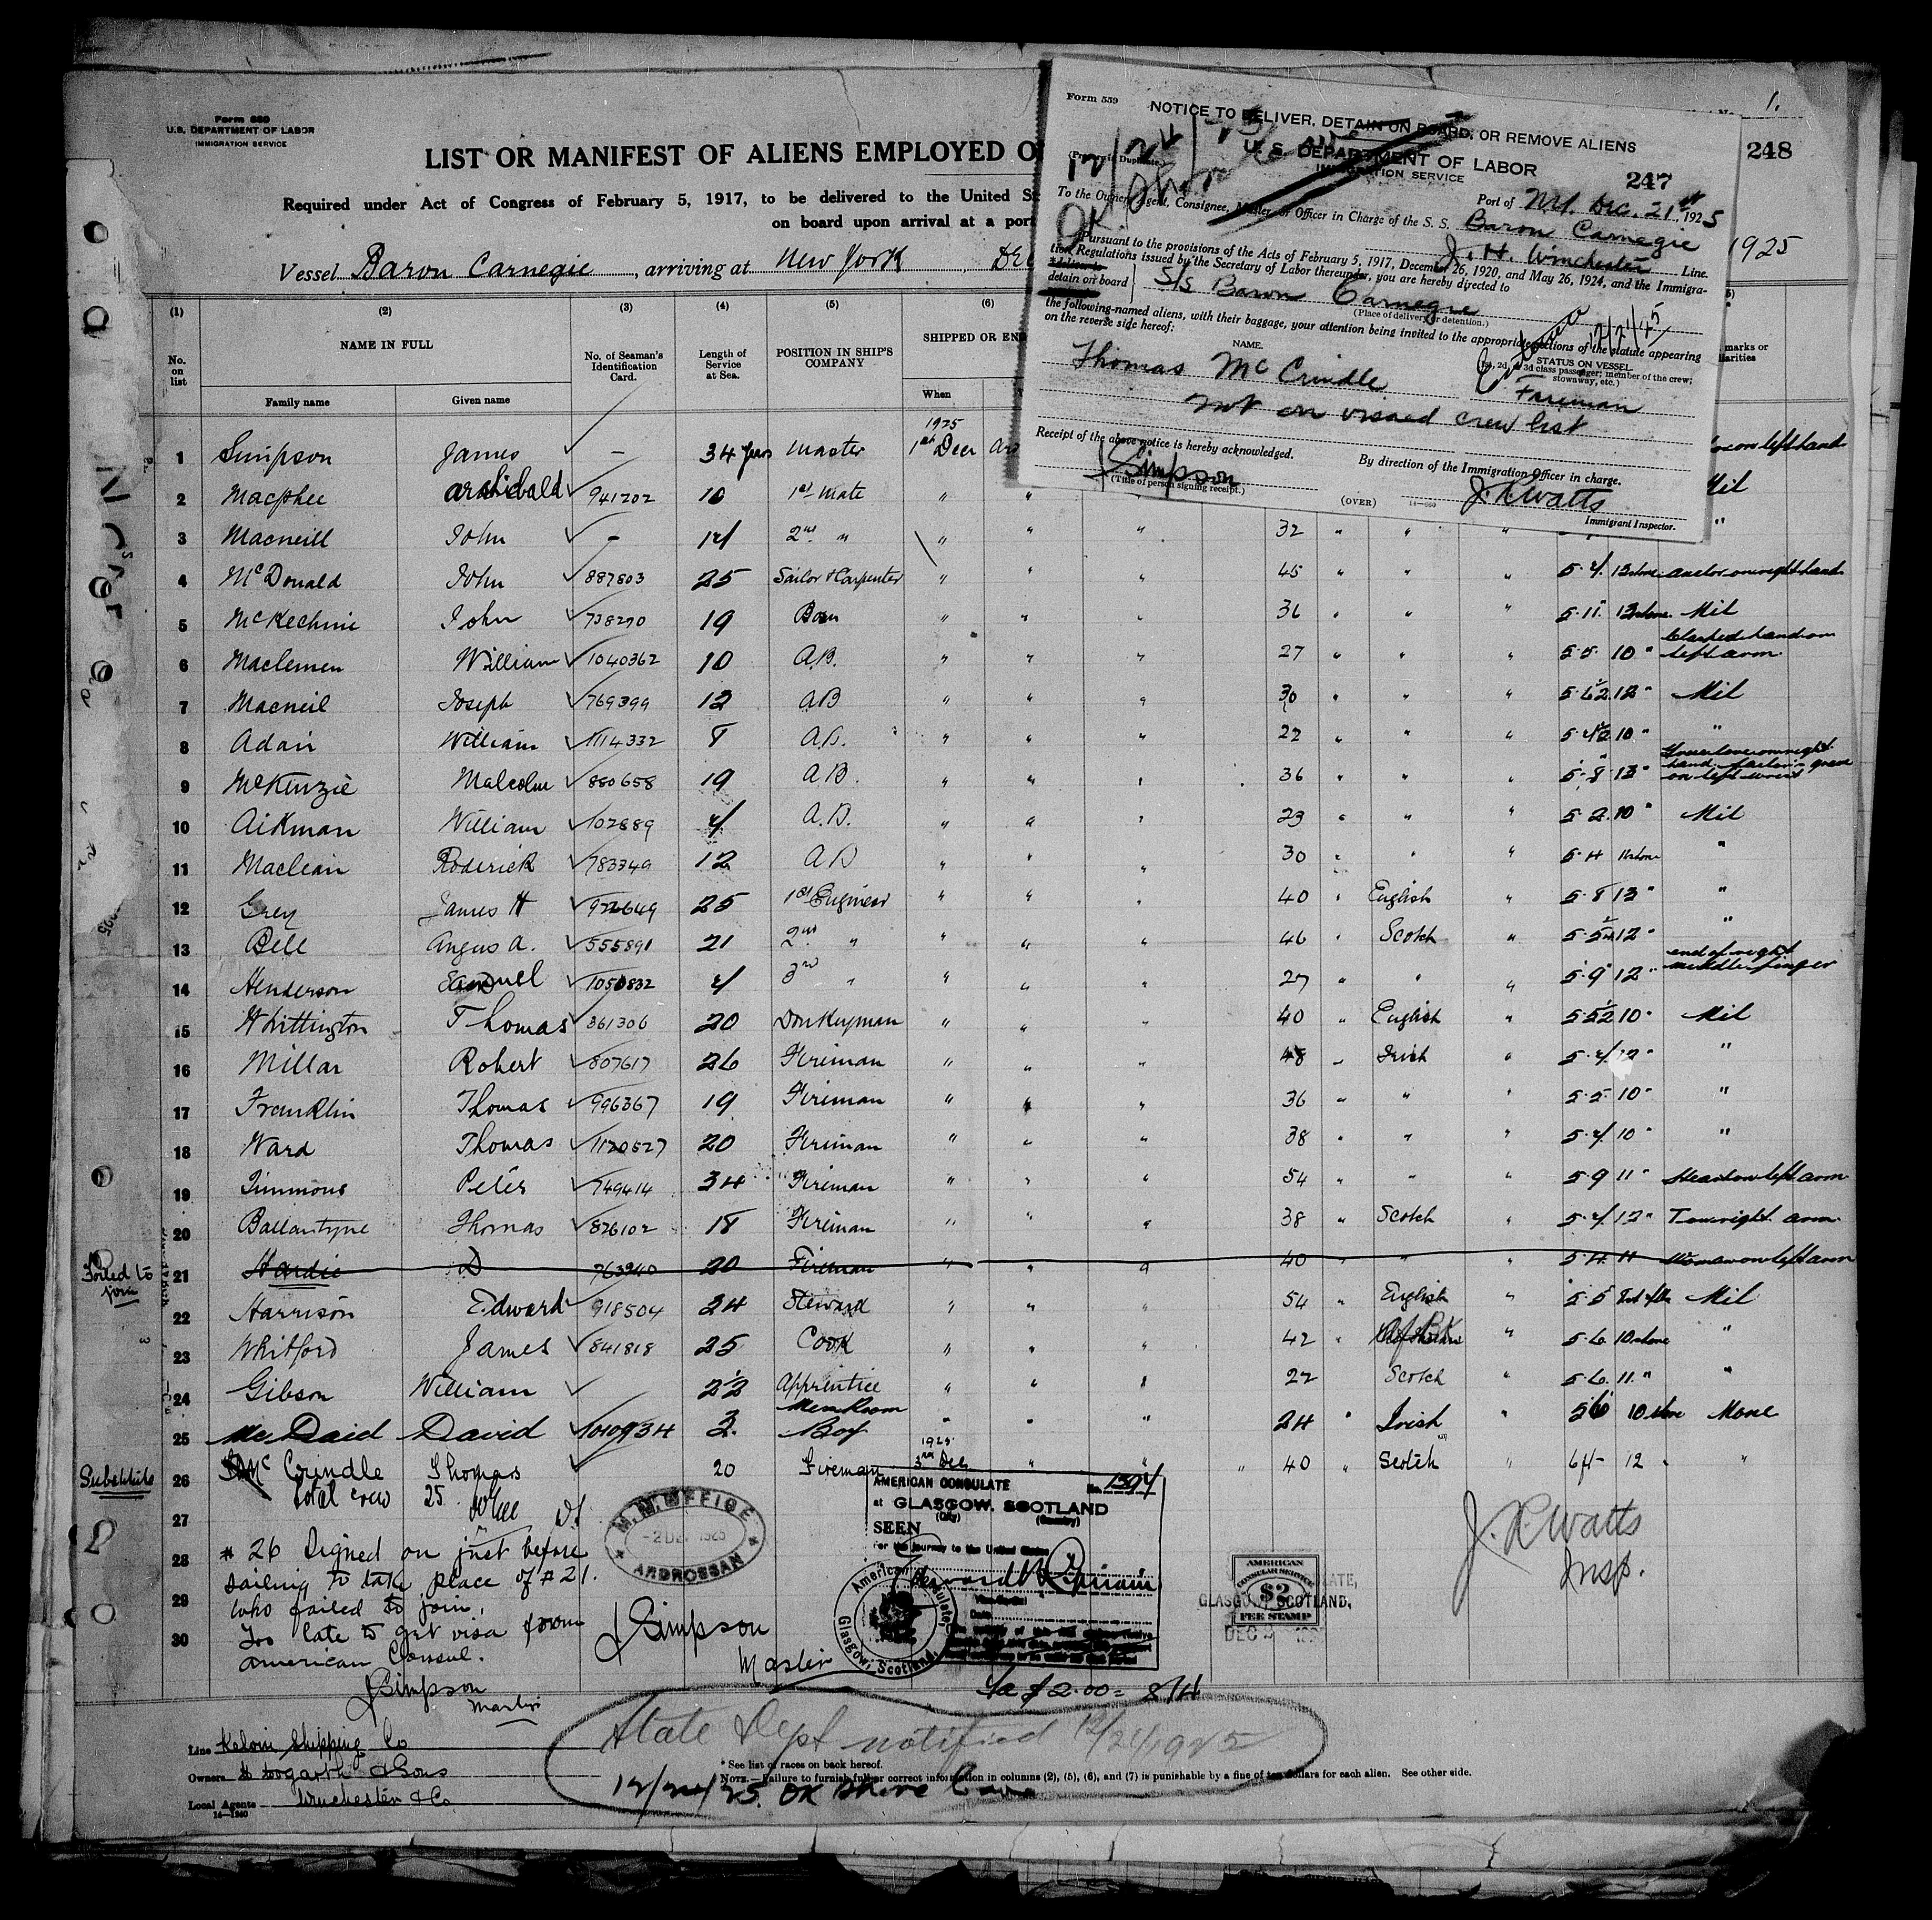 Form 680
U.S. DEPARTMENT OF LABOR
IMMIGRATION SERVICE
1.
248
LIST OR MANIFEST OF ALIENS EMPLOYED O
Required under Act of Congress of February 5, 1917, to be delivered to the United St
on board upon arrival at a port
Vessel Baron Carnegie, arriving at New York, Dec
1925
Form 559
NOTICE TO DELIVER, DETAIN ON BOARD, OR REMOVE ALIENS
U. S. DEPARTMENT OF LABOR
IMMIGRATION SERVICE
247
(Prepare in Duplicate)
Port of N.Y. Dec. 21st, 1925
To the Owner, Agent, Consignee, Master, or Officer in Charge of the S. S. Baron Carnegie
J. H. Winchester Line.
Pursuant to the provisions of the Acts of February 5, 1917, December 26, 1920, and May 26, 1924, and the Immigra-
tion Regulations issued by the Secretary of Labor thereunder, you are hereby directed to
deliver to
detain on board S/s Baron Carnegie
(Place of delivery or detention.)
the following-named aliens, with their baggage, your attention being invited to the appropriate sections of the statute appearing
on the reverse side hereof:
NAME.
STATUS ON VESSEL
(1st, 2d, or 3d class passenger; member of the crew;
stowaway, etc.)
Thomas McCrindle Fireman
not on visaed crew list
Receipt of the above notice is hereby acknowledged.
By direction of the Immigration Officer in charge.
J Simpson
(Title of person signing receipt.)
(OVER)
J. R Watts
Immigrant Inspector.
(1) (2) (3) (4) (5) (6)
No. on list
NAME IN FULL
Family name Given name
No. of Seaman's Identification Card.
Length of Service at Sea.
POSITION IN SHIP'S COMPANY
SHIPPED OR EN
When
marks or
1925
1 Simpson James – 34 years Master 1st Decr on left hand
2 Macphee Archibald 941202 10 1st Mate " " Nil
3 Macneill John – 14 2nd " " " " 32 " " " "
4 McDonald John 887803 25 Sailor & Carpenter " " " 45 " " " 5.4 12 stone anchor on right hand
5 McKechnie John 738270 19 Bosn " " " 36 " " " 5.11 13 stone Nil
6 Maclemen William 1040362 10 A.B. " " " 27 " " " 5.5 10 " Clasped hand on left arm
7 Macneil Joseph 769399 12 AB " " " 30 " " " 5.6½ 12 " Nil
8 Adair William 1114332 8 A.B. " " " 22 " " " 5.4½ 10 " "
9 McKenzie Malcolm 880658 19 A.B. " " " 36 " " " 5.8 13 "
10 Aikman William 102889 4 A.B. " " " 23 " " " 5.2 10 " Nil
11 Maclean Roderick 783349 12 AB " " " 30 " " " 5.4 11 stone "
12 Grey James H 922649 25 1st Engineer " " " 40 " English " 5.8 13 " "
13 Bell Angus A. 555891 21 2nd " " " " 46 " Scotch " 5.5½ 12 " "
14 Henderson Samuel 1050832 4 3rd " " " " 27 " " " 5.9 12 " end of right middle finger
15 Whittington Thomas 361306 20 Donkeyman " " " 40 " English " 5.5½ 10 " Nil
16 Millar Robert 807617 26 Fireman " " " 48 " Irish " 5.4 12 " "
17 Franklin Thomas 996367 19 Fireman " " " 36 " " " 5.5 10 " "
18 Ward Thomas 1120527 20 Fireman " " " 38 " " " 5.4 10 " "
19 Timmons Peter 749414 34 Fireman " " " 54 " " " 5.9 11 " Heart on left arm
20 Ballantyne Thomas 826102 18 Fireman " " " 38 " Scotch " 5.4 12 " T on right arm
Failed to join
21 Hardie D 763940 20 Fireman " " " 40 " " " 5.4 11 Woman on left arm
22 Harrison Edward 918504 24 Steward " " " 54 " English " 5.5 Nil
23 Whitford James 841818 25 Cook " " " 42 " " 5.6 10 stone "
24 Gibson William 2½ Apprentice " " " 22 Scotch " 5.6 11 " "
25 McDaid David 1010934 3. Mess Room Boy " " " 24 " Irish " 5 6 10 stone None
Substitute
26 McCrindle Thomas 20 Fireman 1925 3rd Dec " " 40 " Scotch " 64- 12 " "
Total crew 25
27
28
29
30
# 26 Signed on just before
sailing to take place of # 21.
who failed to join.
Too late to get visa from
American Consul.
J Simpson
Master
M. M. OFFICE
-2 DEC 1925
ARDROSSAN
J Simpson
Master
AMERICAN CONSULATE No. 1394
at GLASGOW, SCOTLAND
(City) (Country)
SEEN
For the journey to the United States
American Consulate
Glasgow, Scotland.
AMERICAN
CONSULAR SERVICE
$2
FEE STAMP
GLASGOW, SCOTLAND,
DEC
J. R Watts
Insp.
State Dept notified 12/21/1925
12/24/25. OK Shore
Line Kelvin Shipping Co
Owners H Hogarth & Sons
Local Agents Winchester & Co
14—1240
* See list of races on back hereof.
NOTE.—Failure to furnish full or correct information in columns (2), (5), (6), and (7) is punishable by a fine of ten dollars for each alien. See other side.